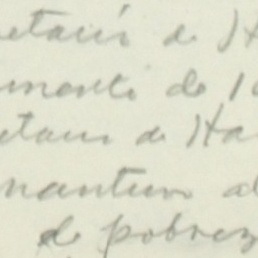 etario de Ha
mente de 1
etario de Ha
mantum a
de pobrez